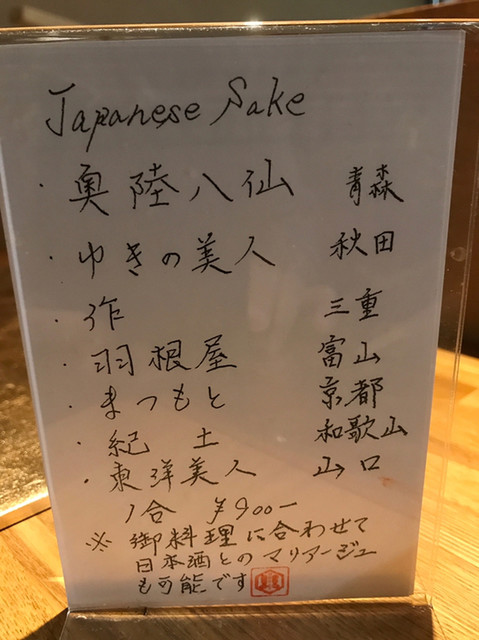 Japanese Sake
・奥陸八仙 青森
・ゆきの美人 秋田
・作 三重
・羽根屋 富山
・まつもと 京都
・紀土 和歌山
・東洋美人 山口
1合 ¥900-
※御料理に合わせて
日本酒とのマリアージュ
も可能です